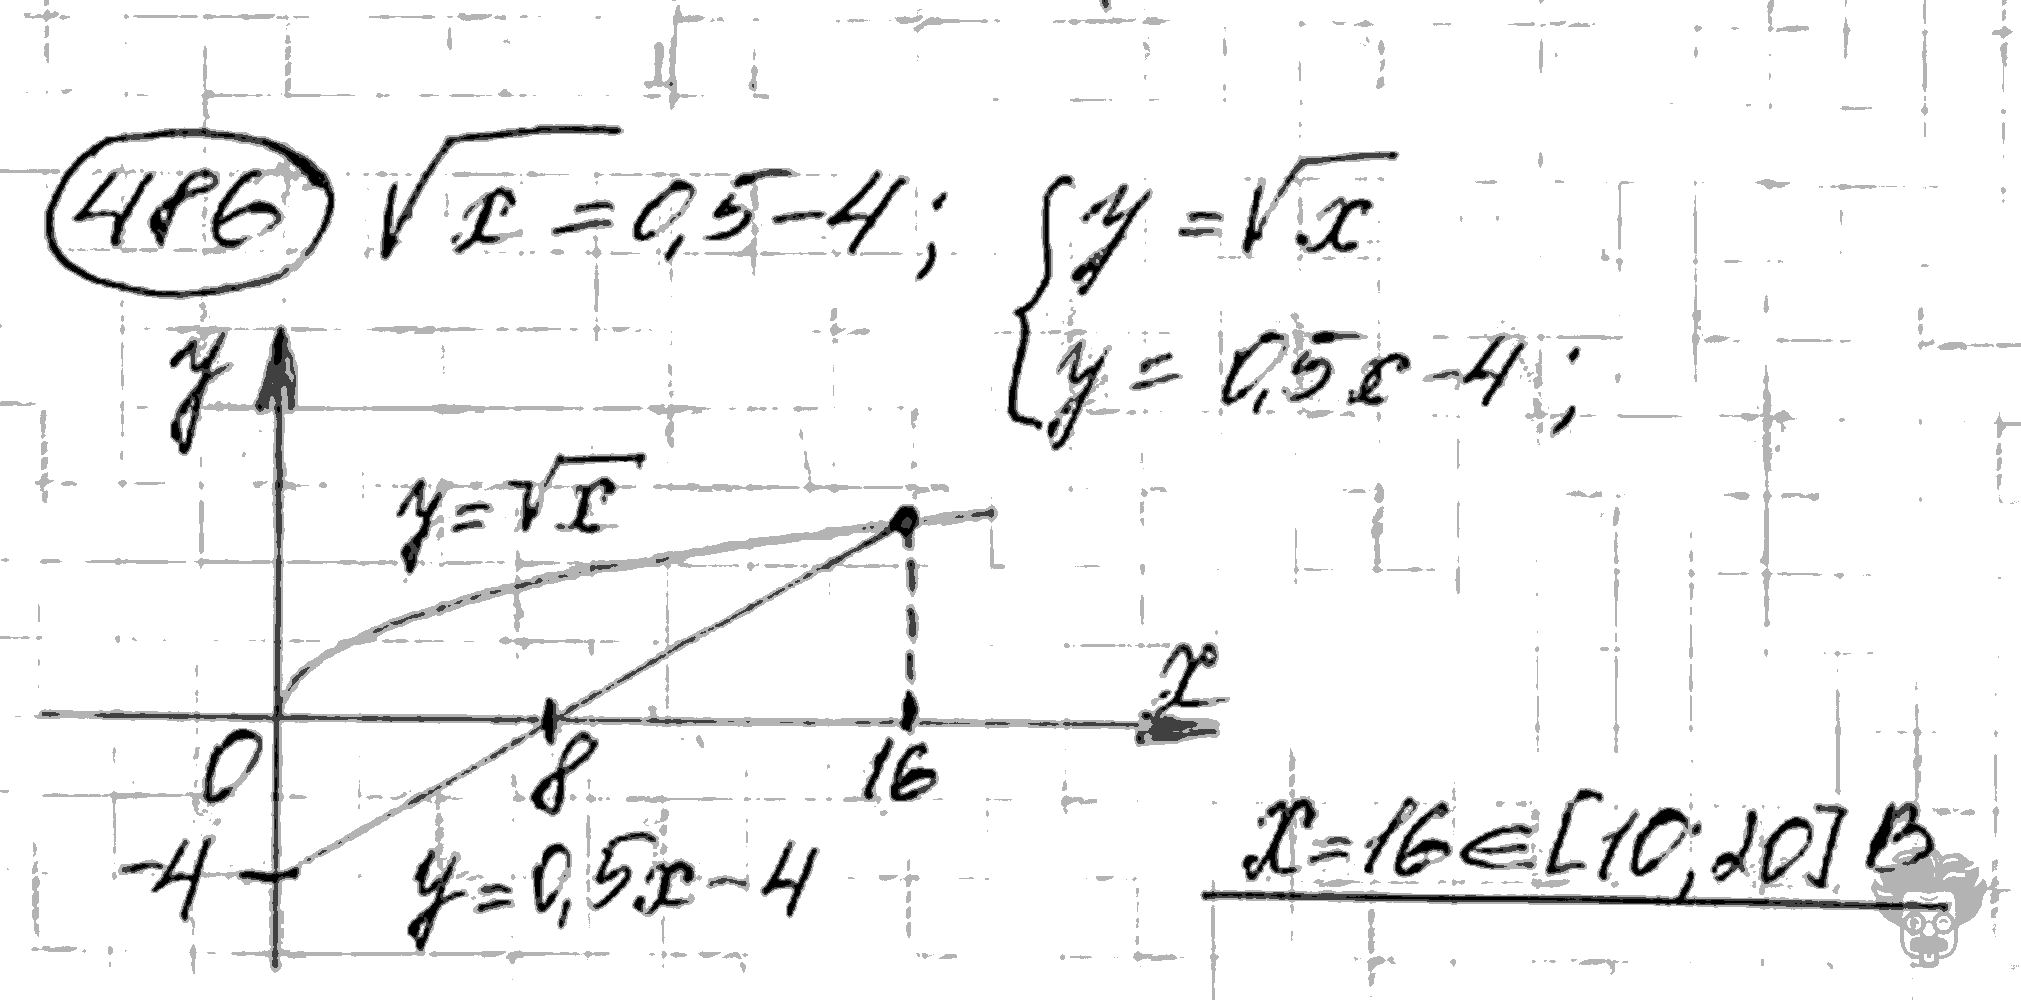 486 √x = 0,5 - 4; { y = √x
y = 0,5x - 4;
y
y = √x
x
0 8 16
-4 y = 0,5x - 4
x = 16 ∈ [10; 20] В